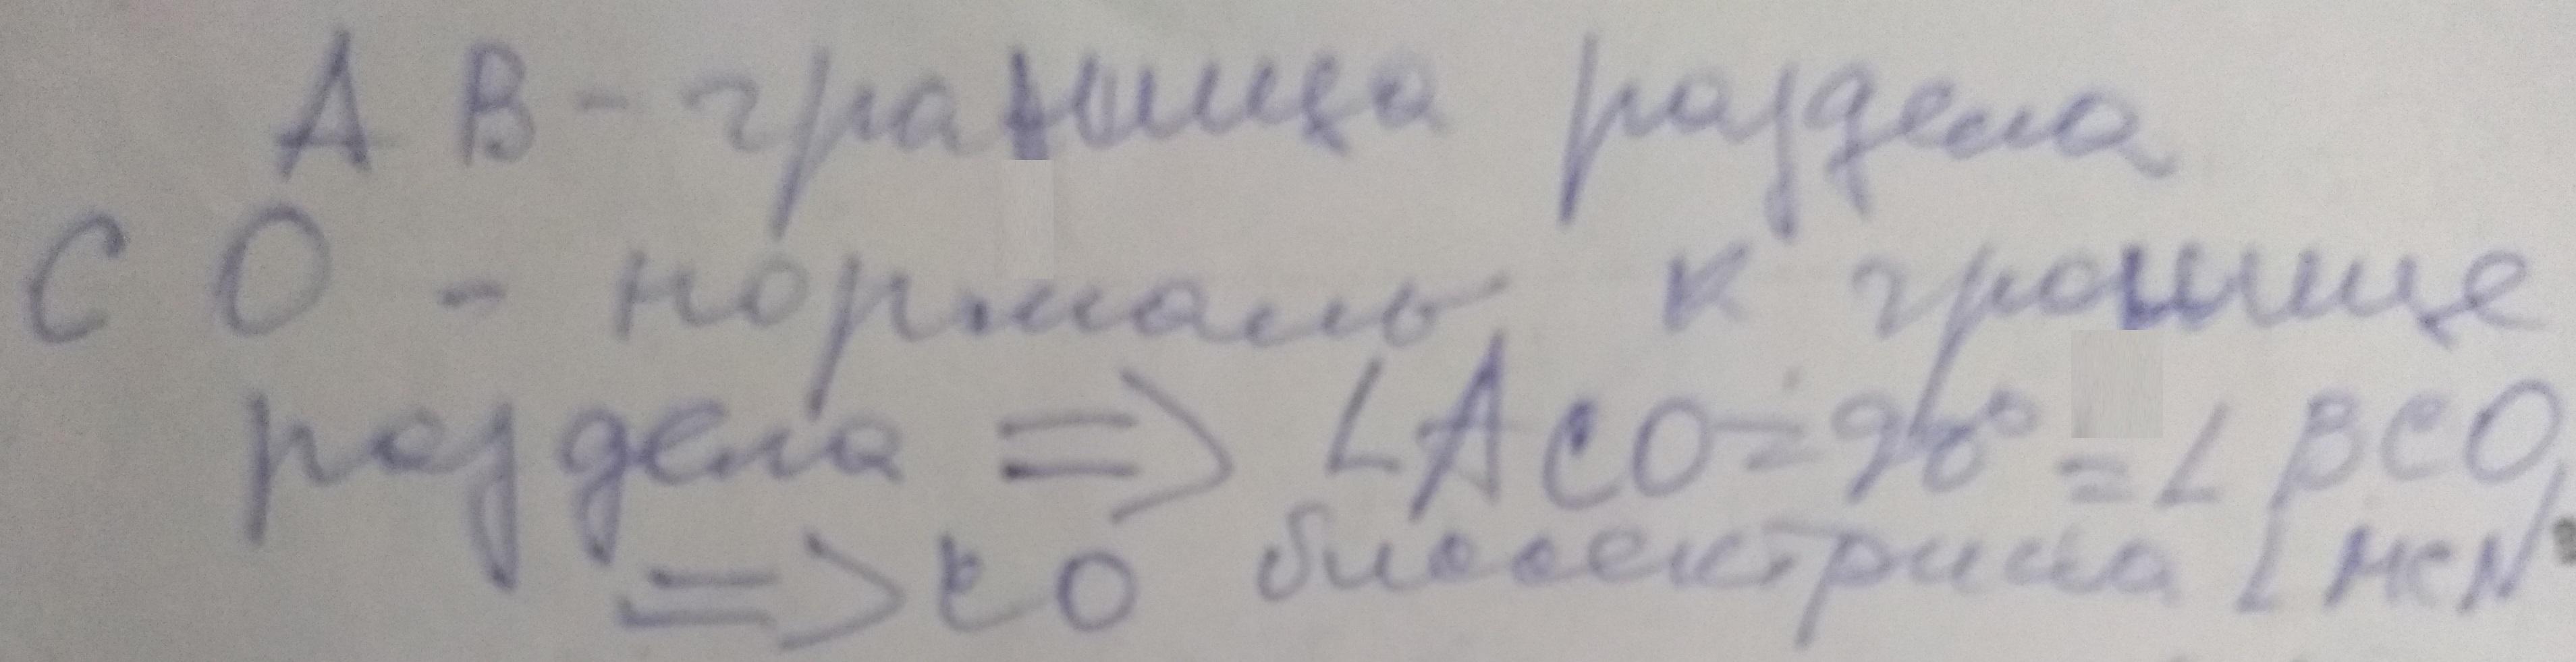 AB - граница раздела
CO - нормаль к границе
раздела => ∠ACO = 90° = ∠BCO,
=> CO биссектриса ∠MCN